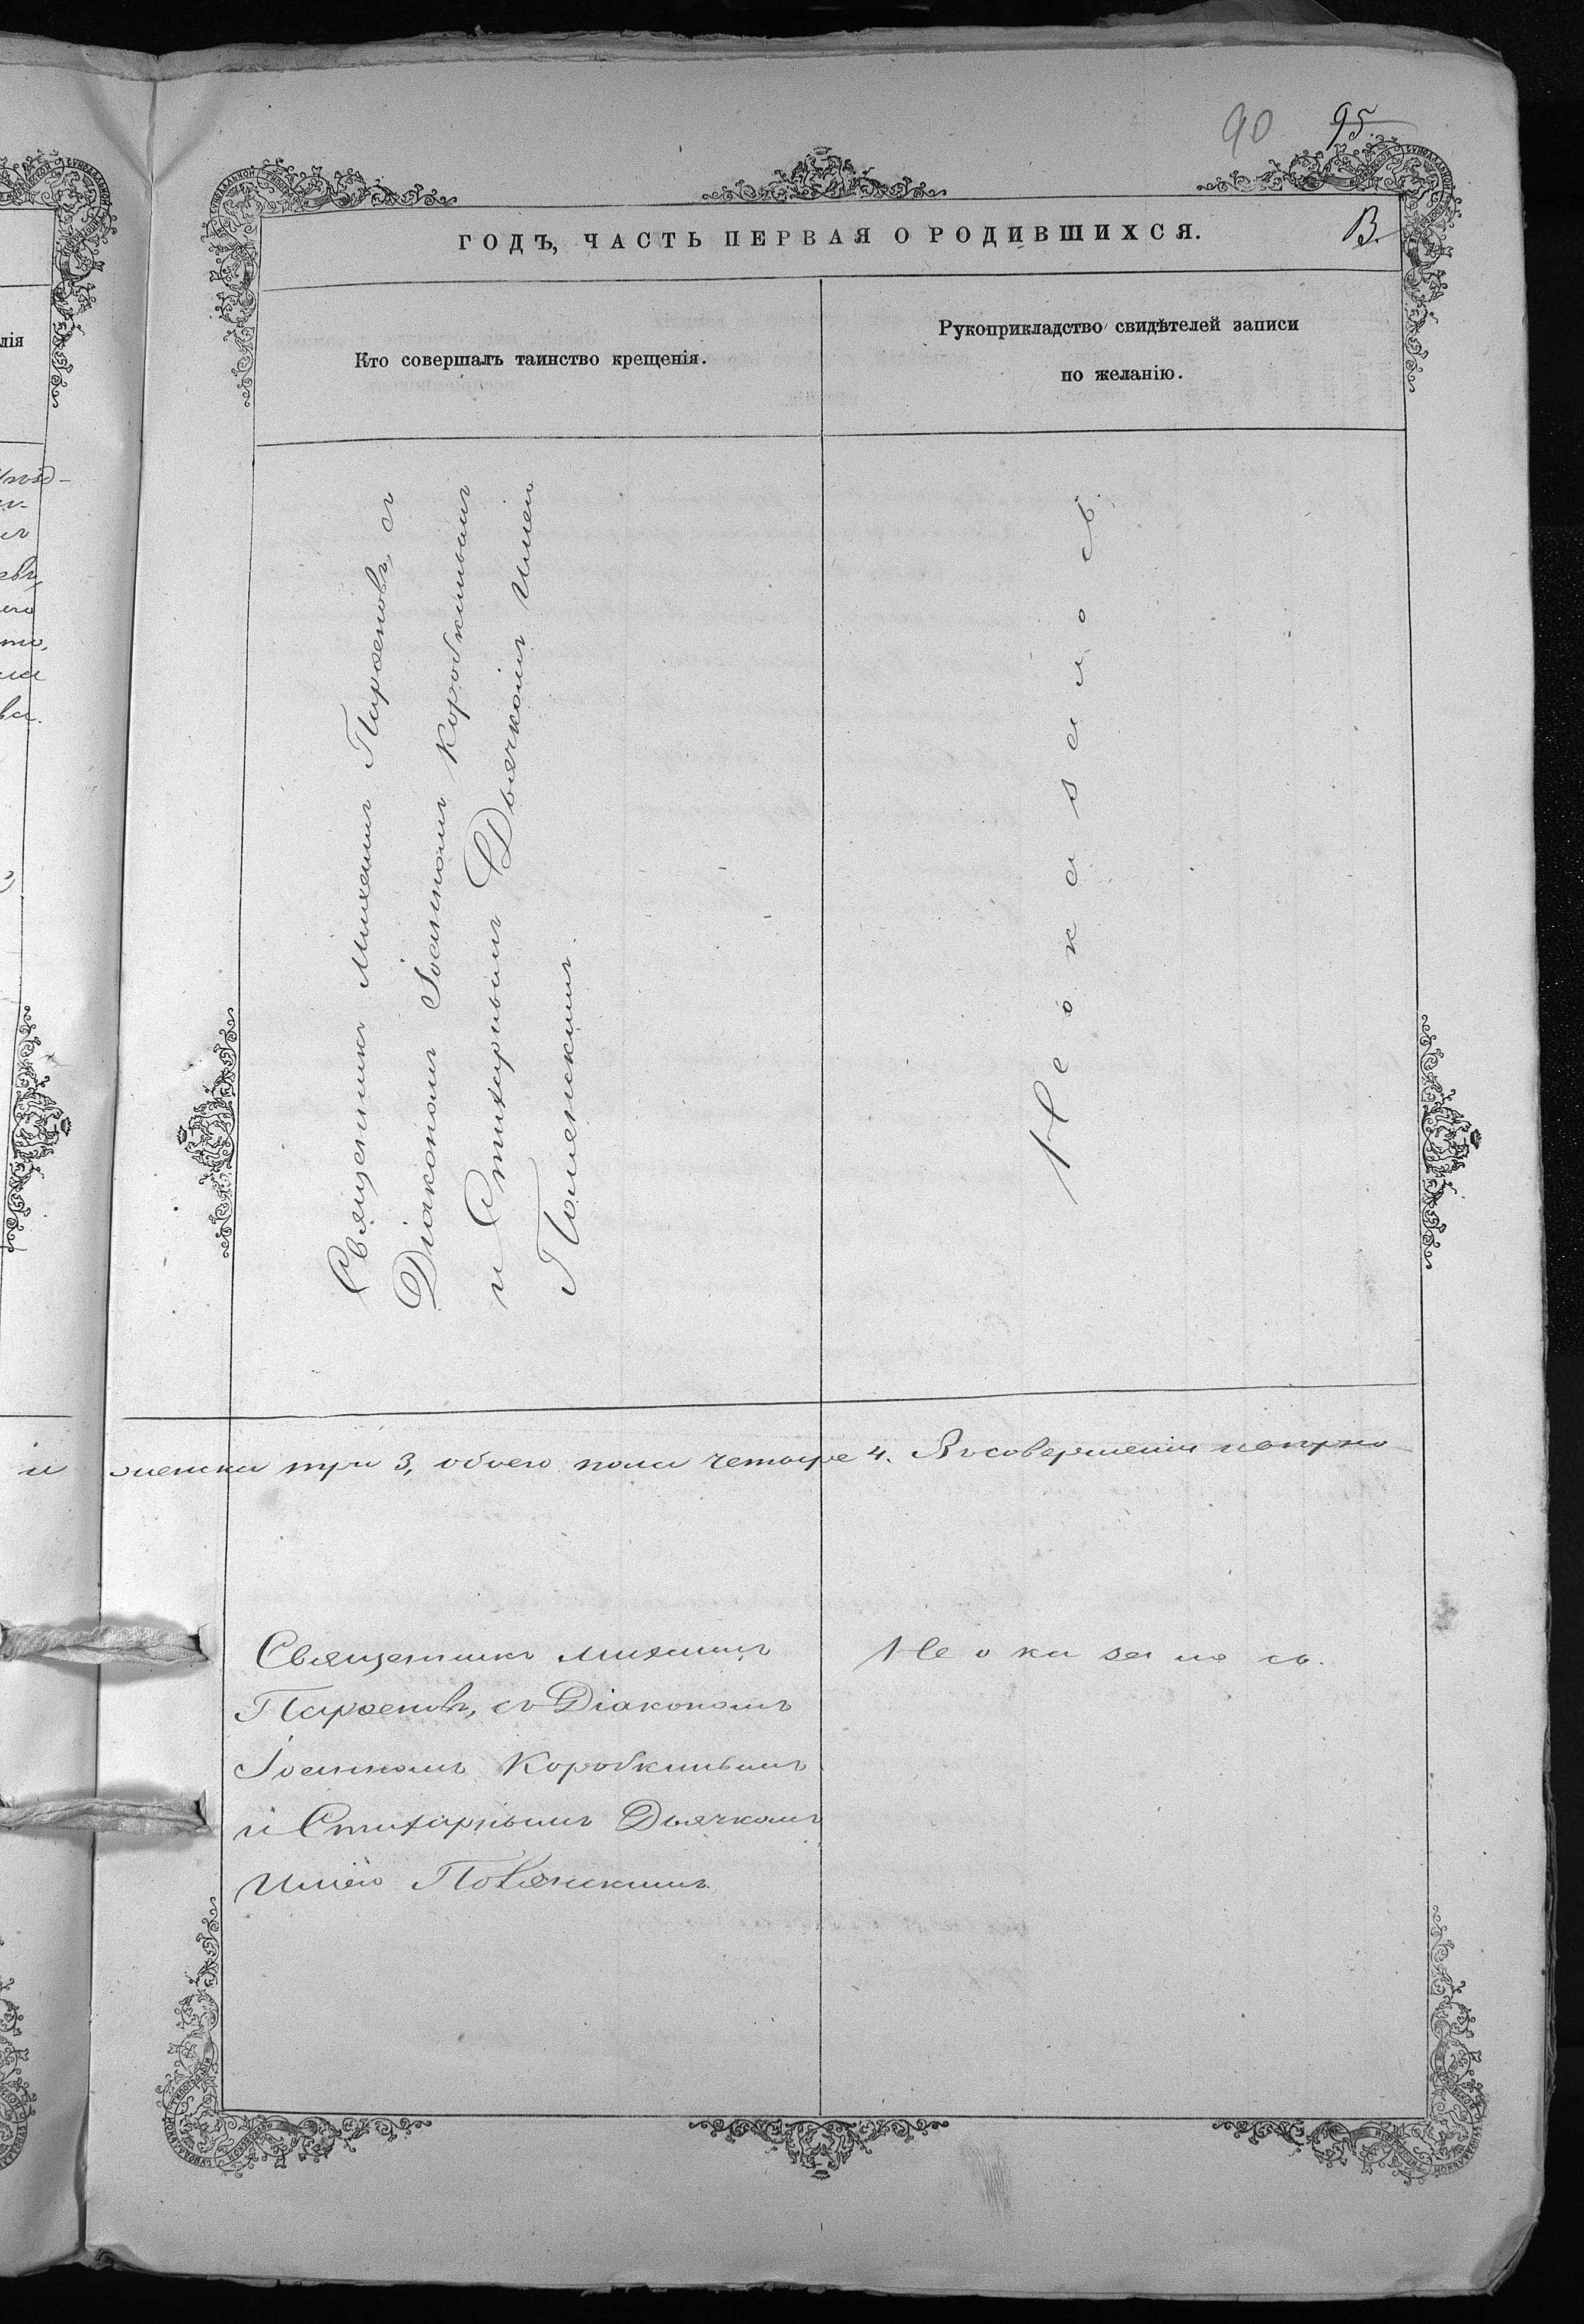 90 95
ГОДЪ, ЧАСТЬ ПЕРВАЯ О РОДИВШИХСЯ.
В.
Кто совершалъ таинство крещенія.
Рукоприкладство свидѣтелей записи
по желанію.
Священникъ Михаилъ Парѳеновъ, съ
Діакономъ Іоанномъ Коробкинымъ
и Стихарнымъ Дьячкомъ Ильею
Полянскимъ.
Не оказалось.
и женска три 3, обоего пола четыре 4. Въ совершеніи
Священникъ Михаилъ
Парѳеновъ, съ Діакономъ
Іоанномъ Коробкинымъ
и Стихарнымъ Дьячкомъ
Ильёю Полянскимъ.
Не оказалось.